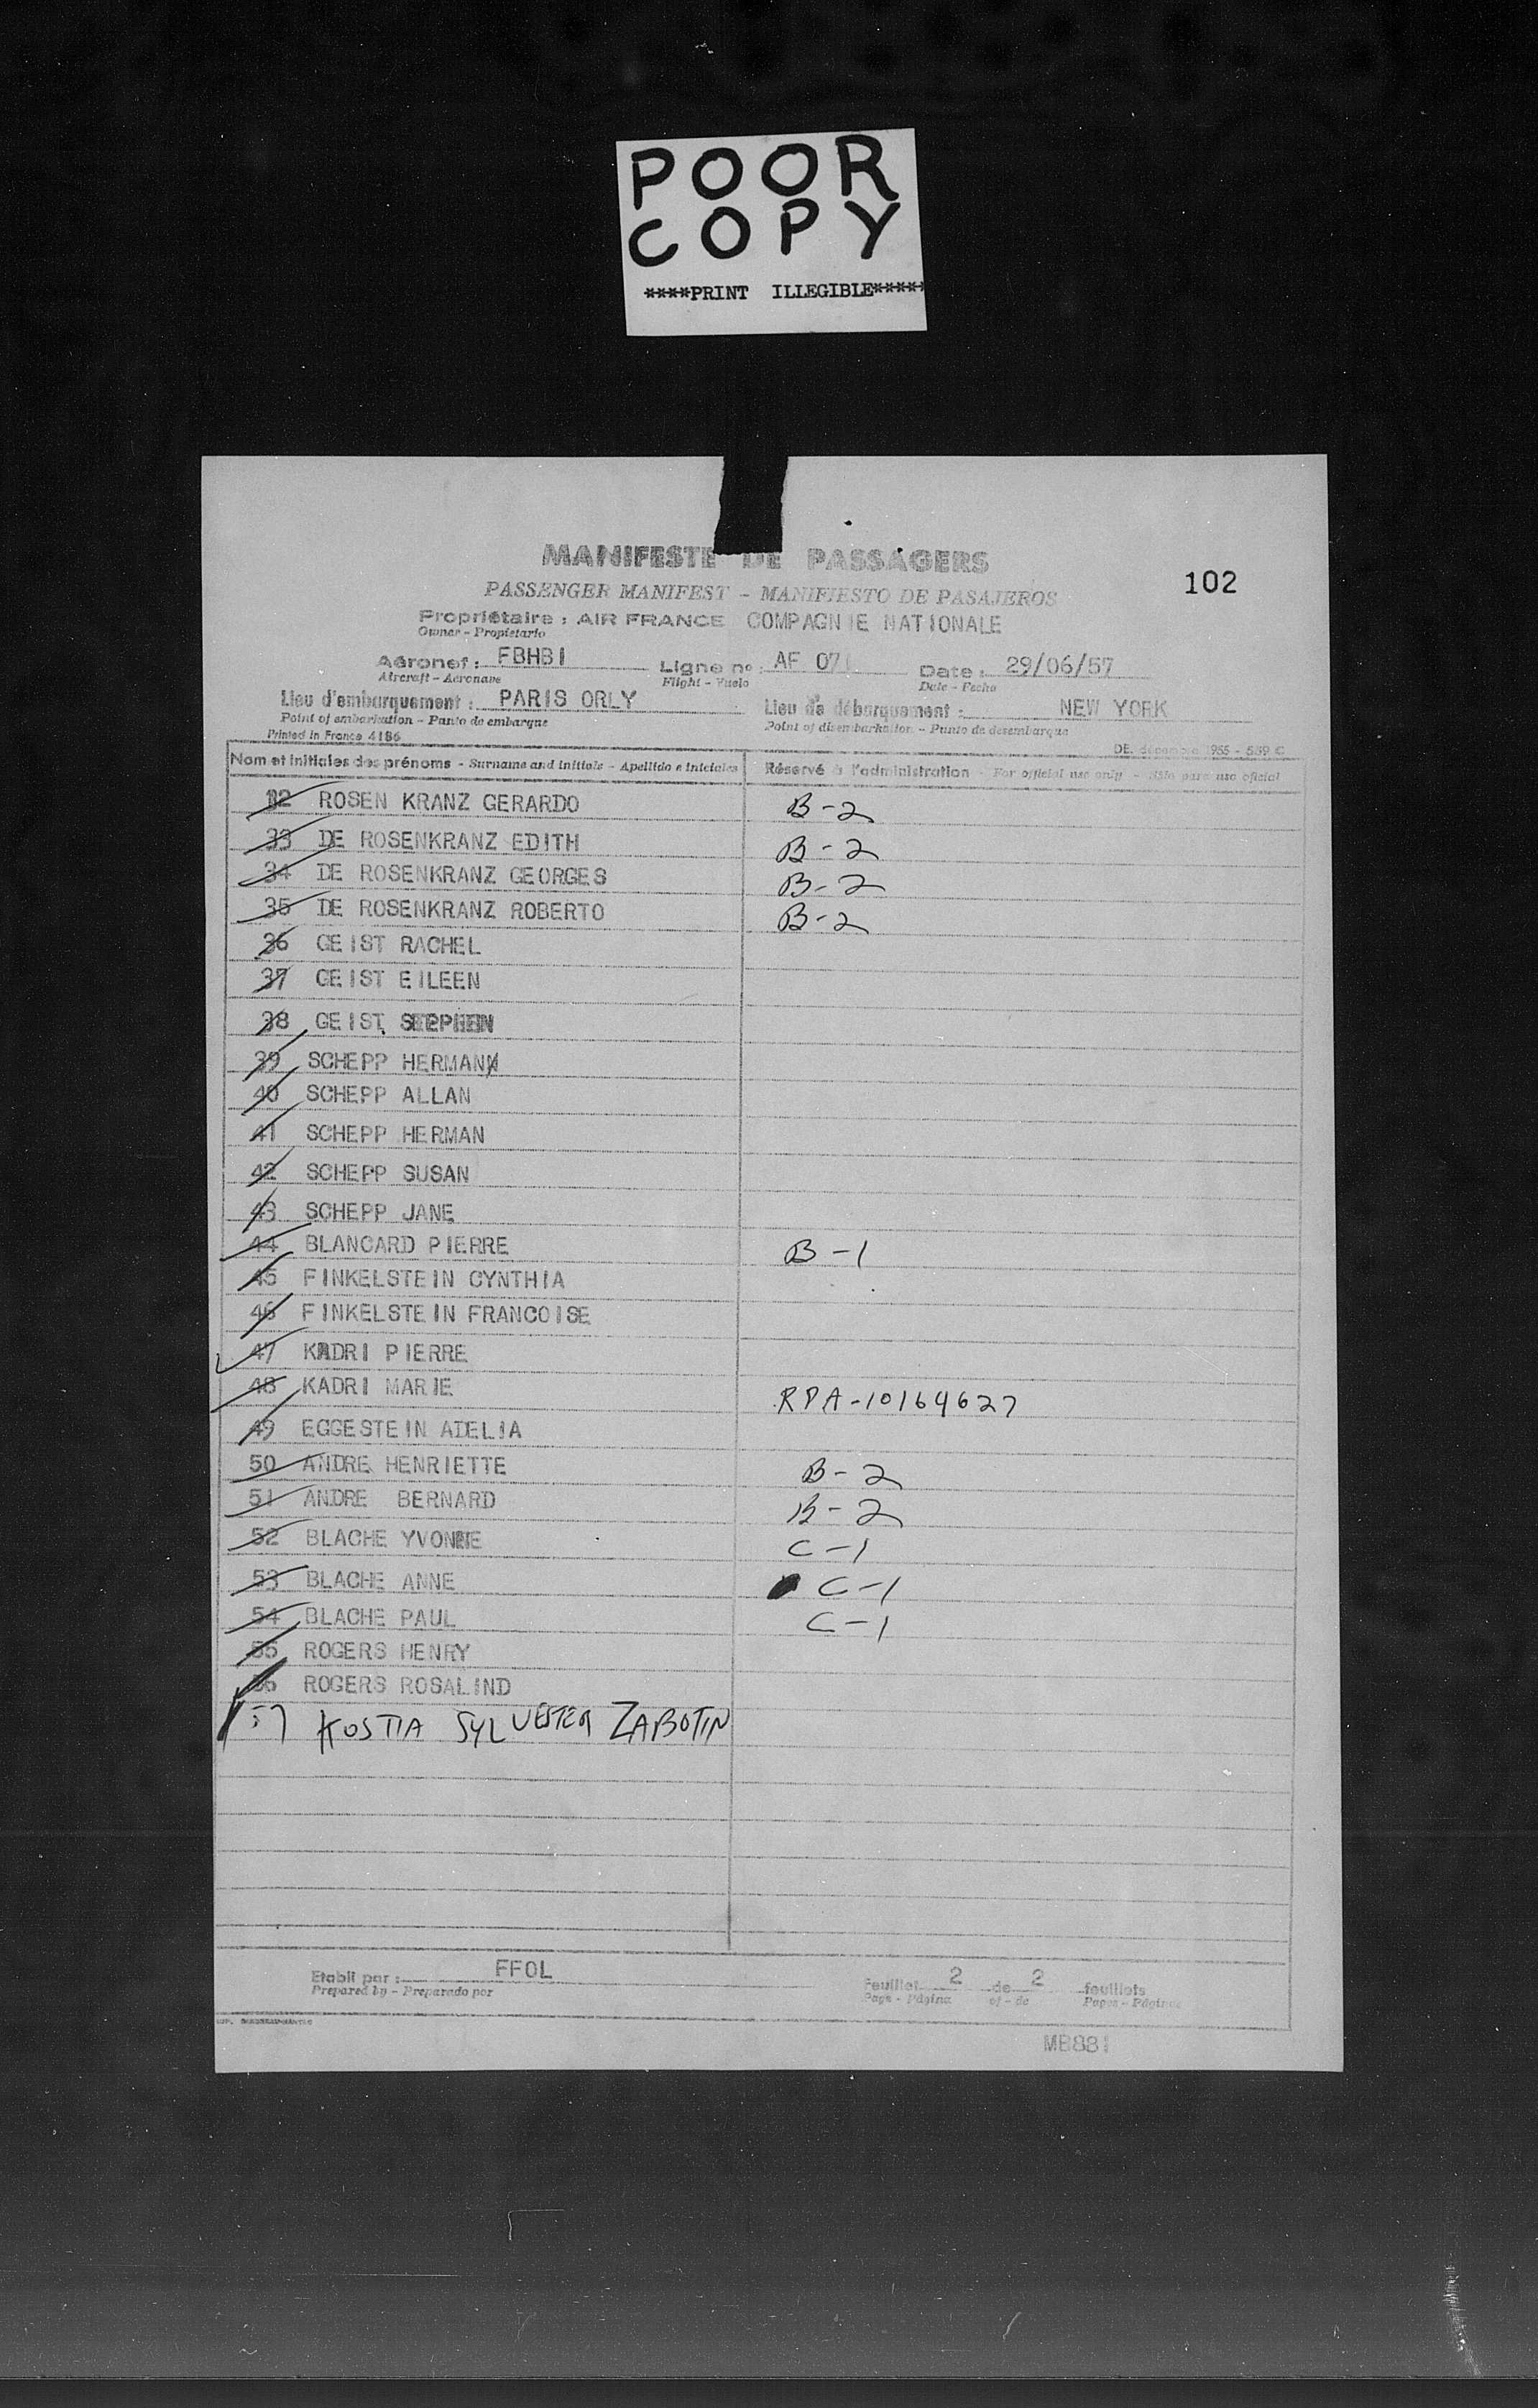 POOR
COPY
****PRINT ILLEGIBLE*****
MANIFESTE DE PASSAGERS
102
PASSENGER MANIFEST - MANIFIESTO DE PASAJEROS
Propriétaire : AIR FRANCE COMPAGNIE NATIONALE
Owner - Propietario
Aéronef : FBHBI Ligne nº : AF 071 Date : 29/06/57
Aircraft - Aeronave Flight - Vuelo Date - Fecha
Lieu d'embarquement : PARIS ORLY Lieu de débarquement : NEW YORK
Point of embarkation - Punto de embarque Point of disembarkation - Punto de desembarque
Printed in France 4186 DE. décembre 1955 - 589 C
Nom et initiales des prénoms - Surname and initials - Apellido e iniciales Réservé à l'administration - For official use only - Sólo para uso oficial
ROSEN KRANZ GERARDO B-2
33 DE ROSENKRANZ EDITH B-2
34 DE ROSENKRANZ GEORGES B-2
35 DE ROSENKRANZ ROBERTO B-2
36 GEIST RACHEL
37 GEIST EILEEN
38 GEIST STEPHEN
39 SCHEPP HERMAN
40 SCHEPP ALLAN
41 SCHEPP HERMAN
42 SCHEPP SUSAN
43 SCHEPP JANE
44 BLANCARD PIERRE B-1
45 FINKELSTEIN CYNTHIA
46 FINKELSTEIN FRANCOISE
47 KADRI PIERRE
48 KADRI MARIE RPA-10164627
49 EGGESTEIN ADELIA
50 ANDRE HENRIETTE B-2
51 ANDRE BERNARD B-2
52 BLACHE YVONNE C-1
53 BLACHE ANNE C-1
54 BLACHE PAUL C-1
55 ROGERS HENRY
56 ROGERS ROSALIND
57 KOSTIA SYLVESTER ZABOTIN
Etabli par : FFOL Feuillet 2 de 2 feuillets
Prepared by - Preparado por Page - Página of - de Pages - Páginas
MB881